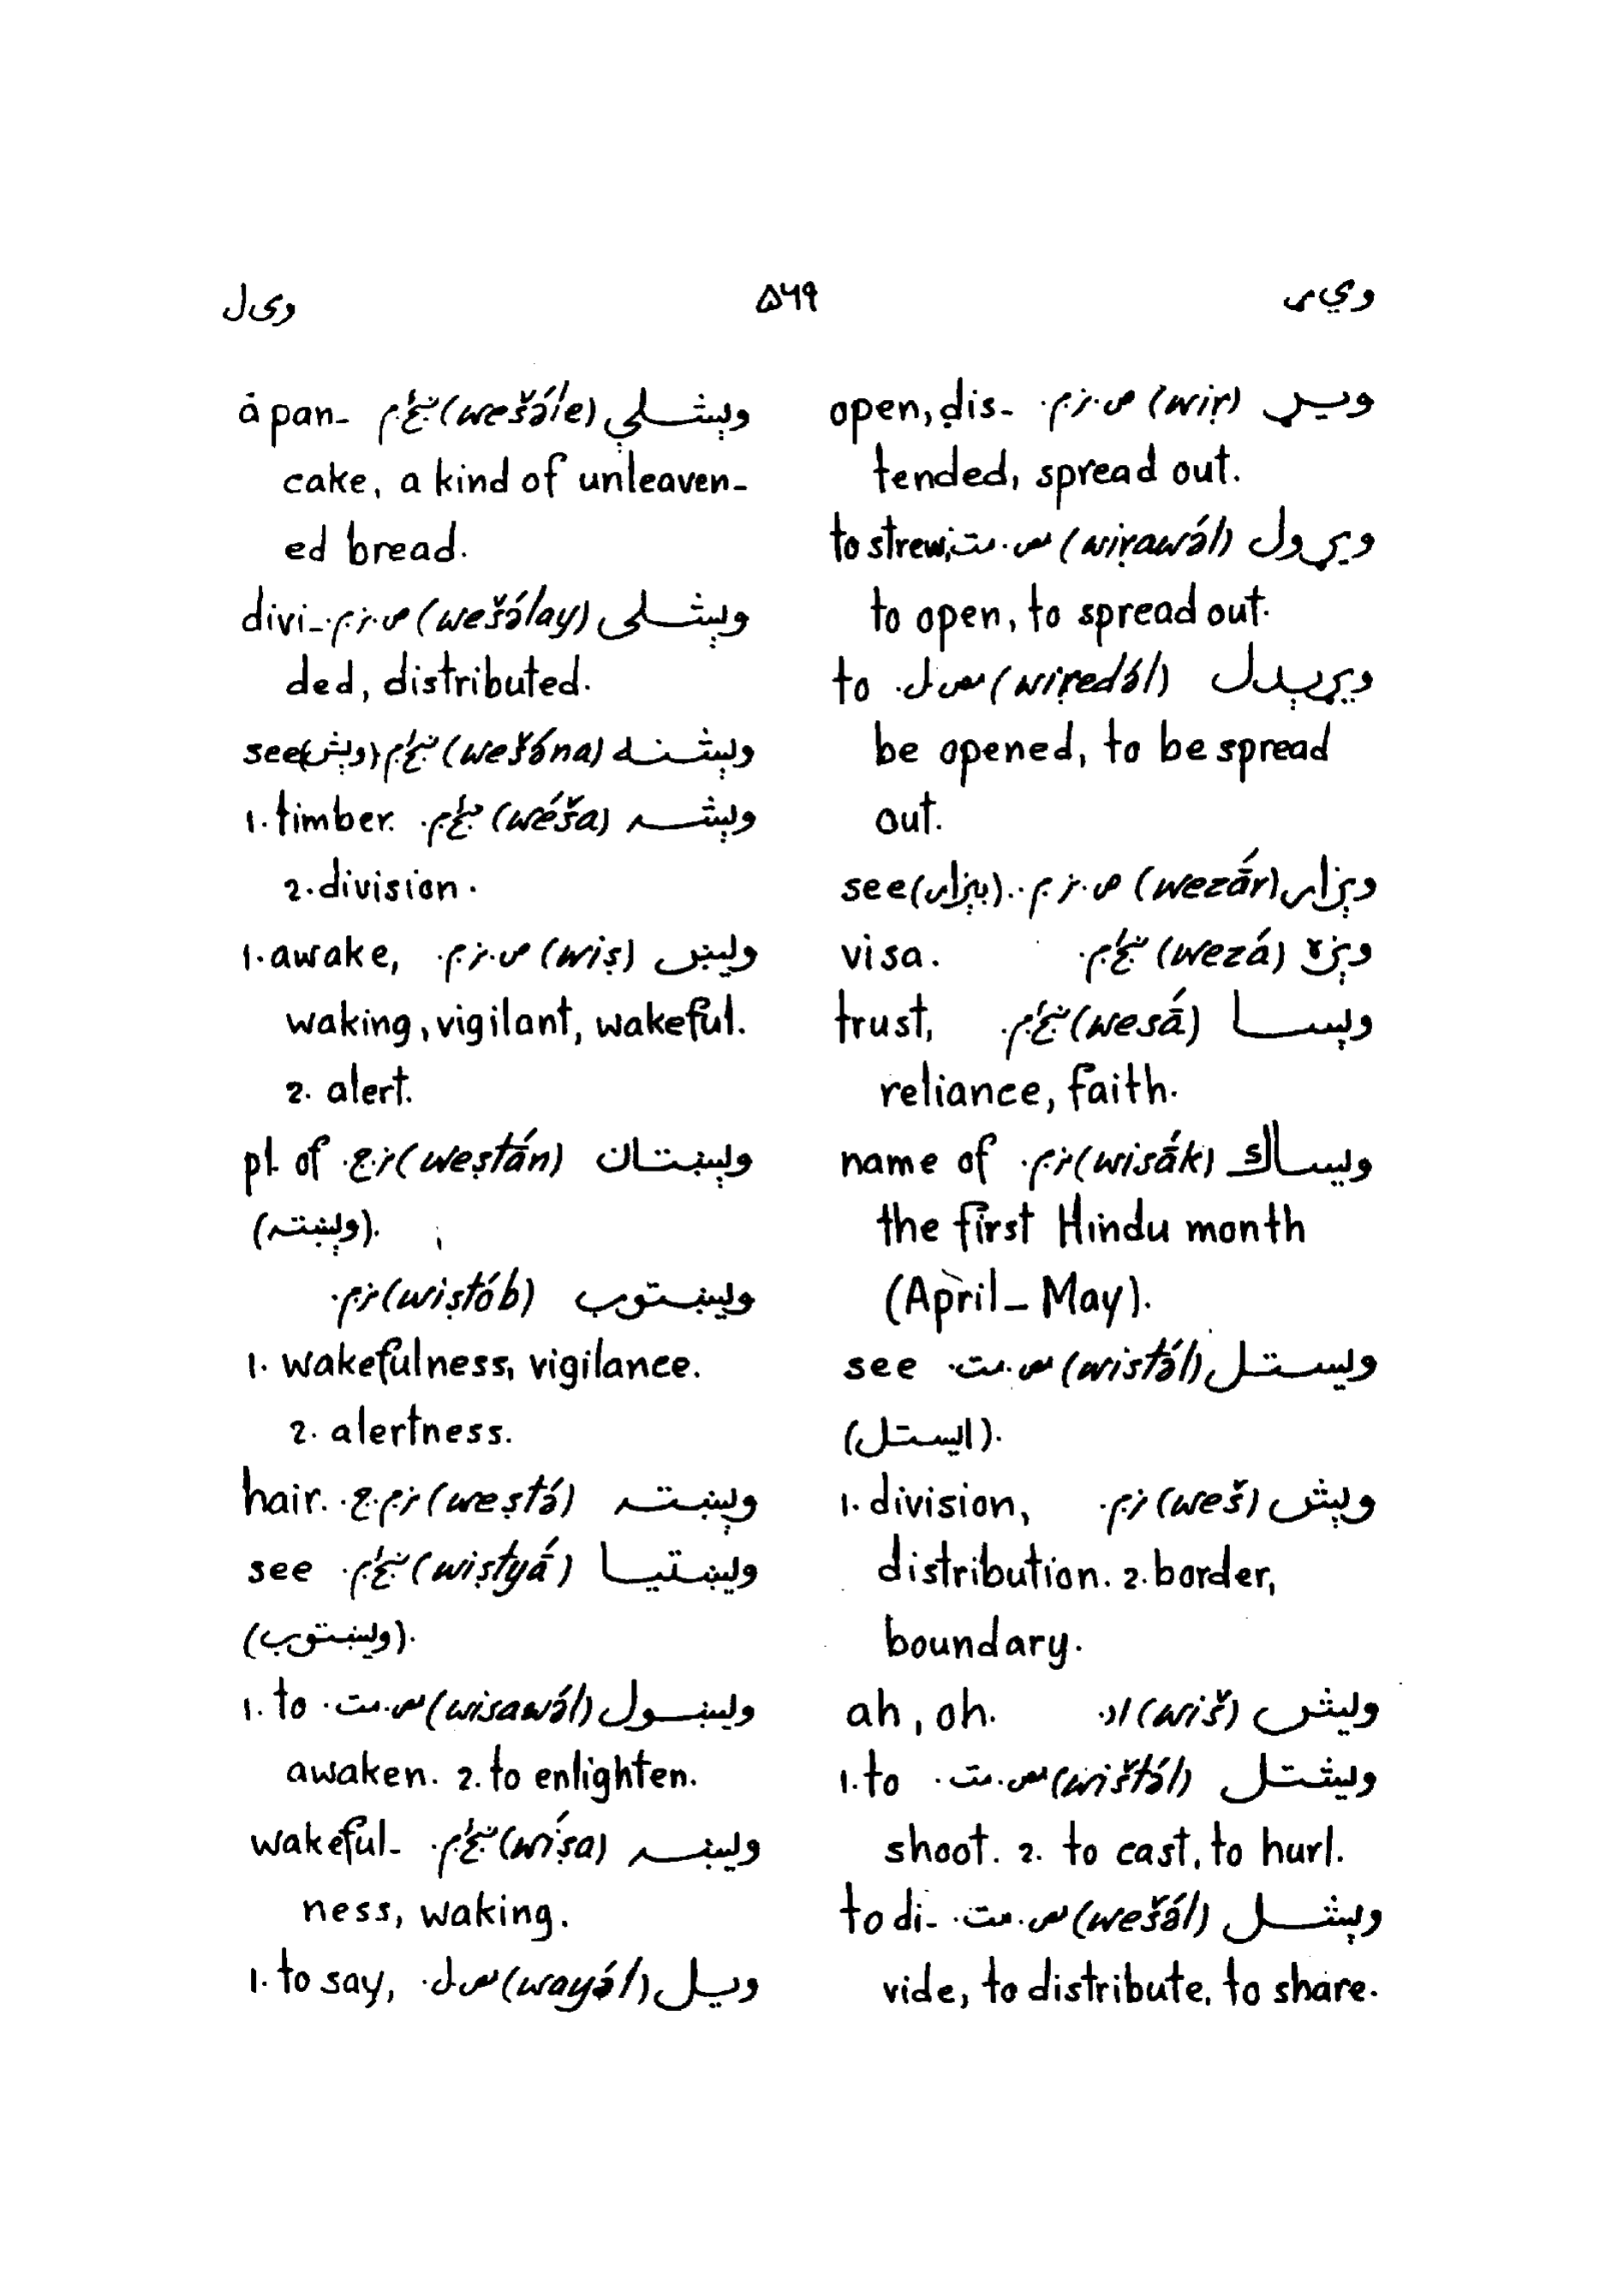 ویر ۵۶۹ ویل
ویړ (wiṛ) ص.نر.م. open, dis-
tended, spread out.
ویړول (wiṛawә́l) مص.مت. to strew;
to open, to spread out.
ویړېدل (wiṛedә́l) مص.ل. to
be opened, to be spread
out.
وېزار (wezā́r) ص.نر.م. see (بېزار).
وېزه (wezá) ښځ.م. visa.
وېسا (wesā́) ښځ.م. trust,
reliance, faith.
ویساک (wisā́k) نر.م. name of
the first Hindu month
(April-May).
ویستل (wistә́l) مص.مت. see
(ایستل).
وېش (weš) نر.م. 1. division,
distribution. 2. border,
boundary.
ویش (wiš) اد. ah, oh.
ویشتل (wištә́l) مص.مت. 1. to
shoot. 2. to cast, to hurl.
وېشل (wešә́l) مص.مت. to di-
vide, to distribute, to share.
وېشلې (wešә́le) ښځ.م. a pan-
cake, a kind of unleaven-
ed bread.
وېشلی (wešә́lay) ص.نر.م. divi-
ded, distributed.
وېشنه (wešә́na) ښځ.م. see (وېش)
وېشه (wéša) ښځ.م. 1. timber.
2. division.
ویښ (wiṣ) ص.نر.م. 1. awake,
waking, vigilant, wakeful.
2. alert.
وېښتان (weṣtán) نر.ج. pl. of
(وېښته).
ویښتوب (wiṣtób) نر.م.
1. wakefulness, vigilance.
2. alertness.
وېښته (weṣtә́) نر.م.ج. hair.
ویښتیا (wiṣtyā́) ښځ.م. see
(ویښتوب).
ویښول (wisawә́l) مص.مت. 1. to
awaken. 2. to enlighten.
ویښه (wíṣa) ښځ.م. wakeful-
ness, waking.
ویل (wayә́l) مص.ل. 1. to say,